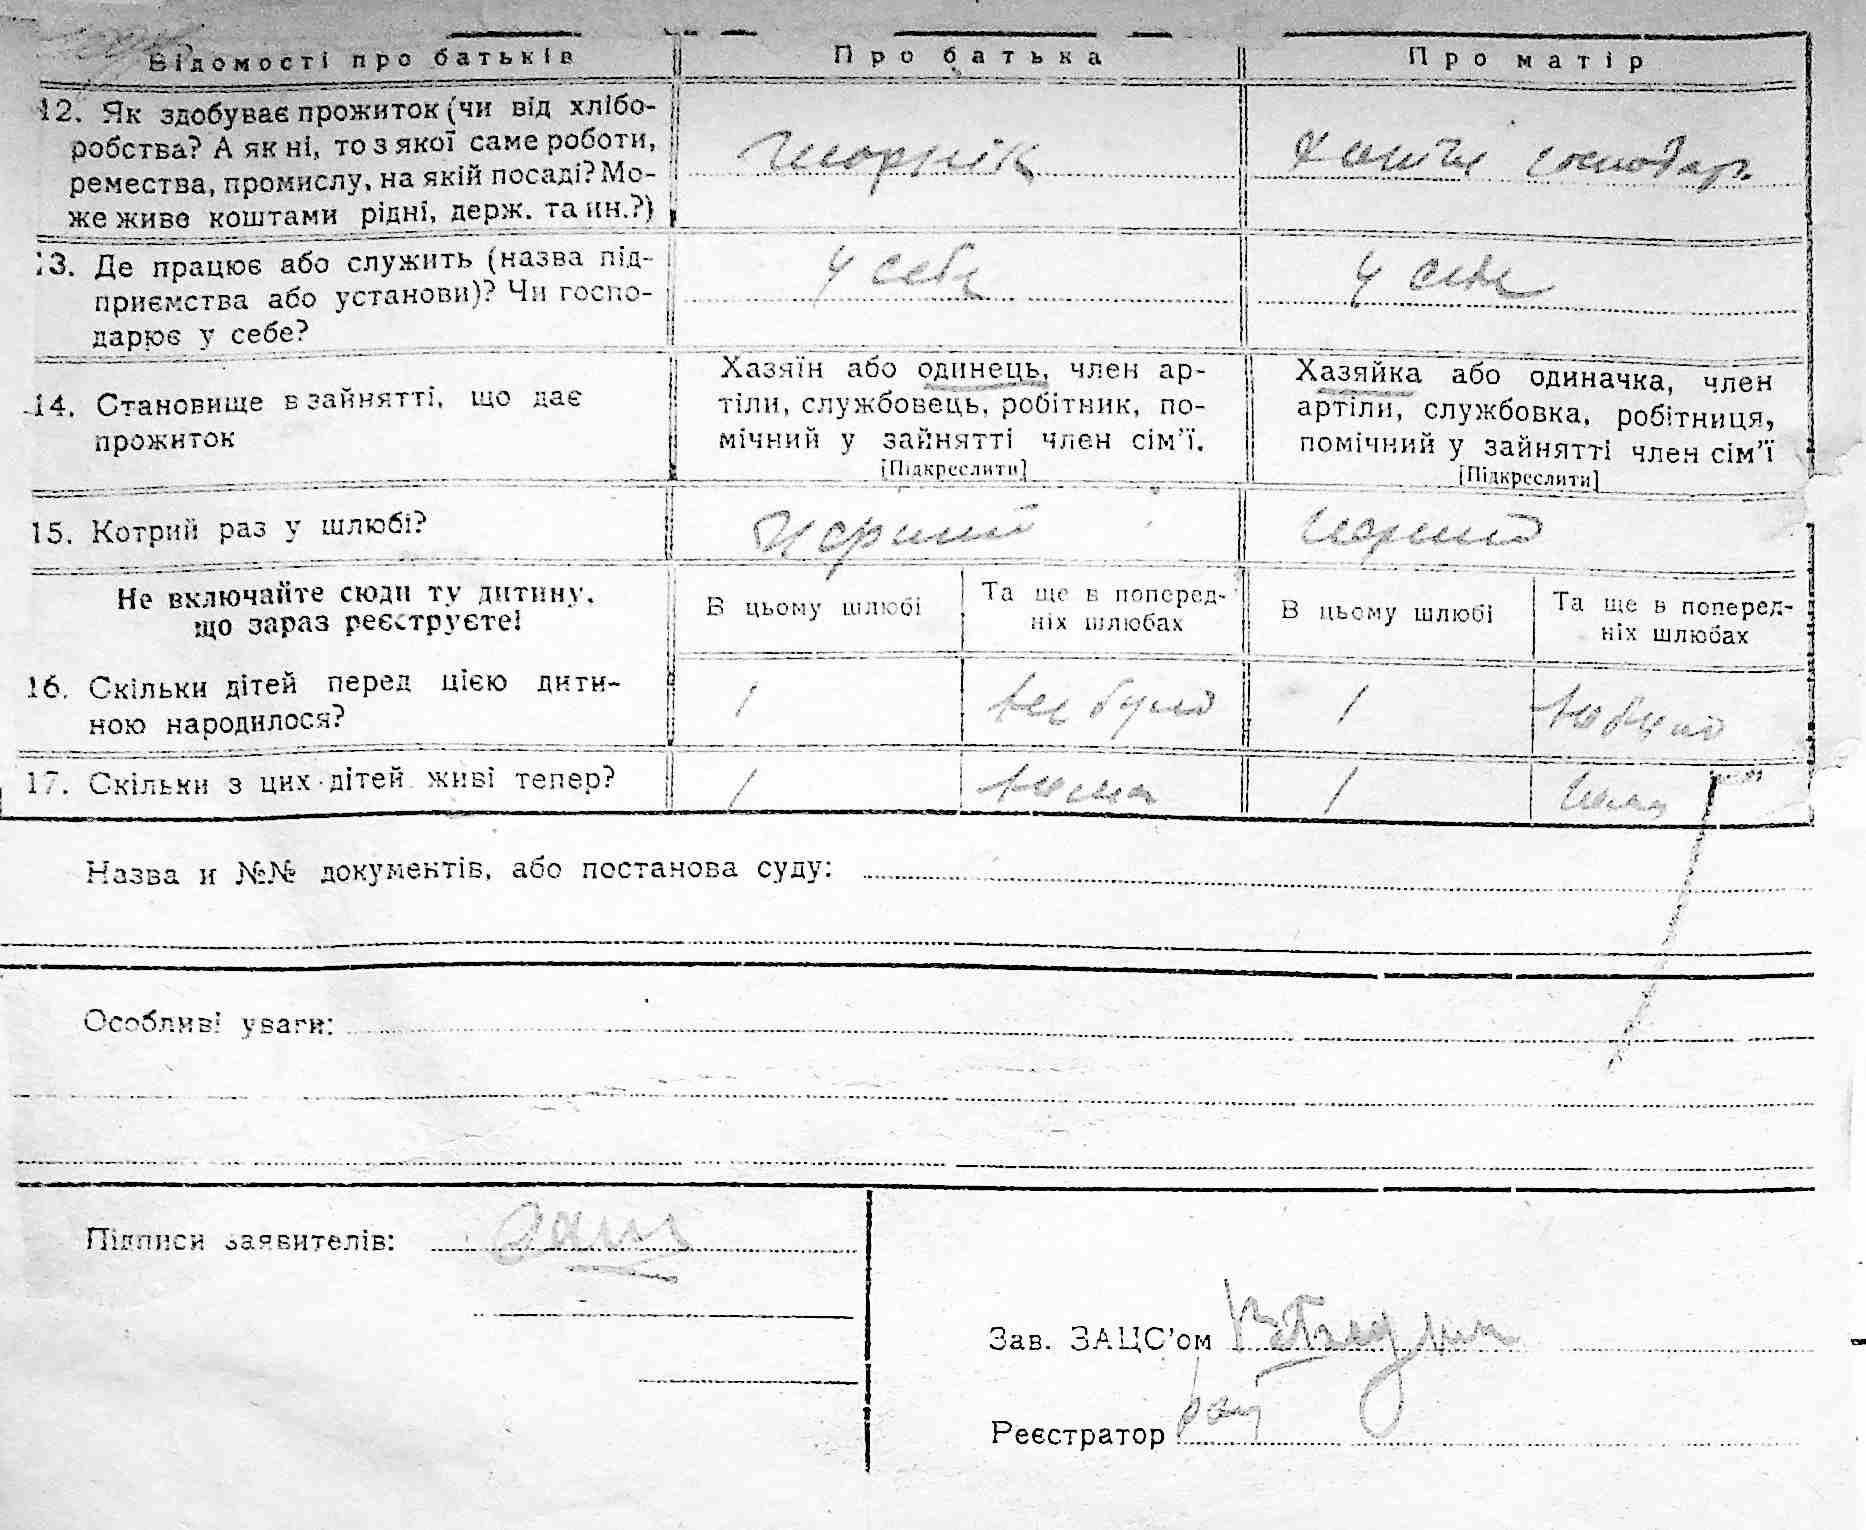 Відомості про батьків
Про батька
Про матір
12. Як здобуває прожиток (чи від хлібо-
робства? А як ні, то з якої саме роботи,
ремества, промислу, на якій посаді? Мо-
же живе коштами рідні, держ. та ин.?)
господар.
13. Де працює або служить (назва під-
приємства або установи)? Чи госпо-
дарює у себе?
у себе
у себе
14. Становище в зайнятті, що дає
прожиток
Хазяїн або одинець, член ар-
тіли, службовець, робітник, по-
мічний у зайнятті член сім'ї.
[Підкреслити]
Хазяйка або одиначка, член
артіли, службовка, робітниця,
помічний у зайнятті член сім'ї
[Підкреслити]
15. Котрий раз у шлюбі?
перший
перший
Не включайте сюди ту дитину,
що зараз реєструєте!
В цьому шлюбі
Та ще в поперед-
ніх шлюбах
В цьому шлюбі
Та ще в поперед-
ніх шлюбах
16. Скільки дітей перед цією дити-
ною народилося?
1
не було
1
не було
17. Скільки з цих дітей живі тепер?
1
нема
1
нема
Назва и №№ документів, або постанова суду:
Особливі уваги:
Підписи заявителів:
Зав. ЗАЦС'ом
Реєстратор